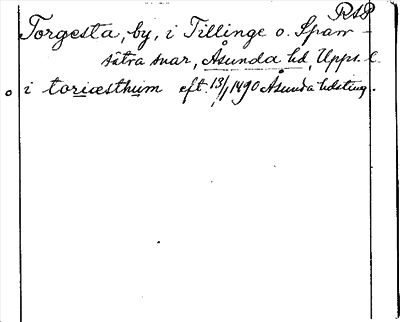 RAP
Torgesta, by, i Tillinge o. Sparr-
sätra snar, Åsunda hd, Upps. l.
i toriæsthum eft. 13/1 1490 Åsunda hdsting.